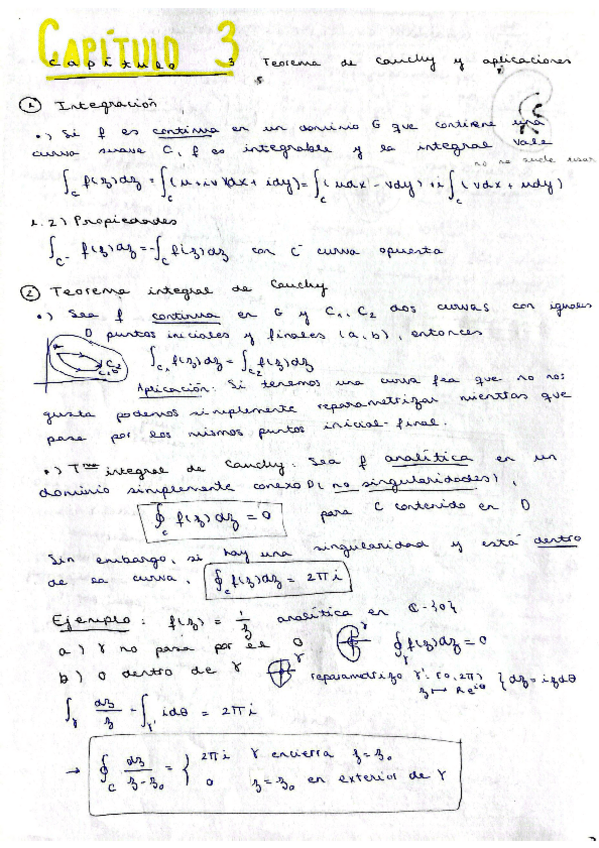 CAPÍTULO 3
Capítulo 3 Teorema de Cauchy y aplicaciones
① Integración
•) Si f es continua en un dominio G que contiene una
curva suave C, f es integrable y la integral vale
no se suele usar
∫_C f(z)dz = ∫_C (u+iv)(dx+idy) = ∫_C (udx - vdy) + i ∫_C (vdx + udy)
1.2) Propiedades
∫_C⁻ f(z)dz = -∫_C f(z)dz con C⁻ curva opuesta
② Teorema integral de Cauchy
•) Sea f continua en G y C₁, C₂ dos curvas con iguales
puntos iniciales y finales (a,b), entonces
∫_C₁ f(z)dz = ∫_C₂ f(z)dz
Aplicación: Si tenemos una curva fea que no nos
gusta podemos simplemente reparametrizar mientras que
pase por los mismos puntos inicial-final.
•) Tma integral de Cauchy: Sea f analítica en un
dominio simplemente conexo D (no singularidades),
∮_C f(z)dz = 0 para C contenido en D
Sin embargo, si hay una singularidad y está dentro
de la curva, ∮_C f(z)dz = 2πi
Ejemplo: f(z) = 1/z analítica en ℂ-{0}
a) γ no pasa por el 0 γ ∮_γ f(z)dz = 0
b) 0 dentro de γ γ reparametrizo γ': [0,2π) { dz = izdθ
z ↦ Re^iθ
∫_γ dz/z = ∫_γ' idθ = 2πi
→ ∮_C dz/(z-z₀) = { 2πi γ encierra z=z₀
0 z=z₀ en exterior de γ